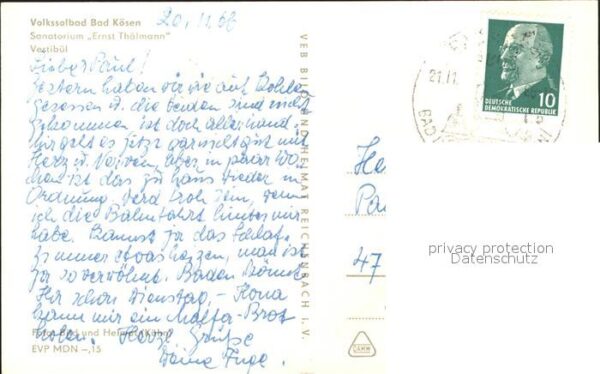 Volkssolbad Bad Kösen
20.11.66
Sanatorium „Ernst Thälmann"
Vestibül
Lieber Paul!
Gestern haben wir wie auf Kohlen
gesessen u. die beiden sind nicht
gekommen ist doch allerhand.
Mir geht es jetzt gar nicht gut mit
Herz u. Nerven aber in paar Wo-
chen ist das zu Haus wieder in
Ordnung. Werd froh sein, wenn
ich die Bahnfahrt hinter mir
habe. Kannst ja das Schlaf-
zimmer etwas heizen, man ist
ja so verwöhnt. Baden könnt
Ihr schon Dienstag, - Ilona
kann mir ein Malfa-Brot
holen. Herzl. Grüße
Deine Inge.
Foto: Bild und Heimat (Kühn)
EVP MDN -,15
VEB BILD UND HEIMAT REICHENBACH i. V.
21.11.
BAD
10
DEUTSCHE
DEMOKRATISCHE REPUBLIK
He
Pa
47
privacy protection
Datenschutz